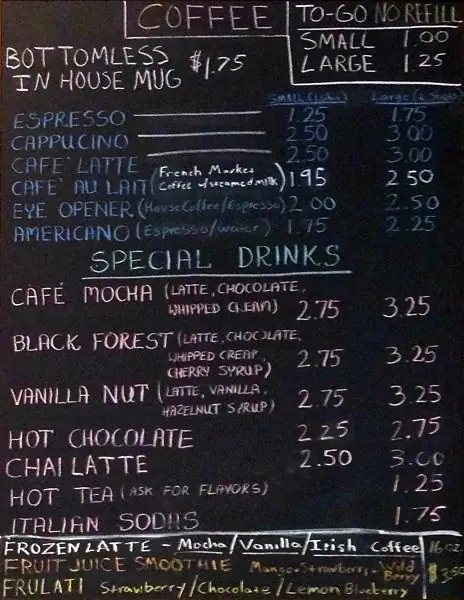 COFFEE
TO-GO NO REFILL
SMALL 1.00
LARGE 1.25
BOTTOMLESS
IN HOUSE MUG $1.75
SMALL (1 shot) Large (2 shots)
ESPRESSO 1.25 1.75
CAPPUCINO 2.50 3.00
CAFE' LATTE 2.50 3.00
CAFE' AU LAIT (French Market Coffee w/steamed milk) 1.95 2.50
EYE OPENER (House Coffee/Espresso) 2.00 2.50
AMERICANO (Espresso/water) 1.75 2.25
SPECIAL DRINKS
CAFÉ MOCHA (LATTE, CHOCOLATE,
WHIPPED CREAM) 2.75 3.25
BLACK FOREST (LATTE, CHOCOLATE,
WHIPPED CREAM,
CHERRY SYRUP) 2.75 3.25
VANILLA NUT (LATTE, VANILLA,
HAZELNUT SYRUP) 2.75 3.25
HOT CHOCOLATE 2.25 2.75
CHAI LATTE 2.50 3.00
HOT TEA (ASK FOR FLAVORS) 1.25
ITALIAN SODAS 1.75
FROZEN LATTE - Mocha/Vanilla/Irish Coffee 16oz.
FRUIT JUICE SMOOTHIE Mango-Strawberry-Wild Berry $3.50
FRULATI Strawberry/Chocolate/Lemon Blueberry